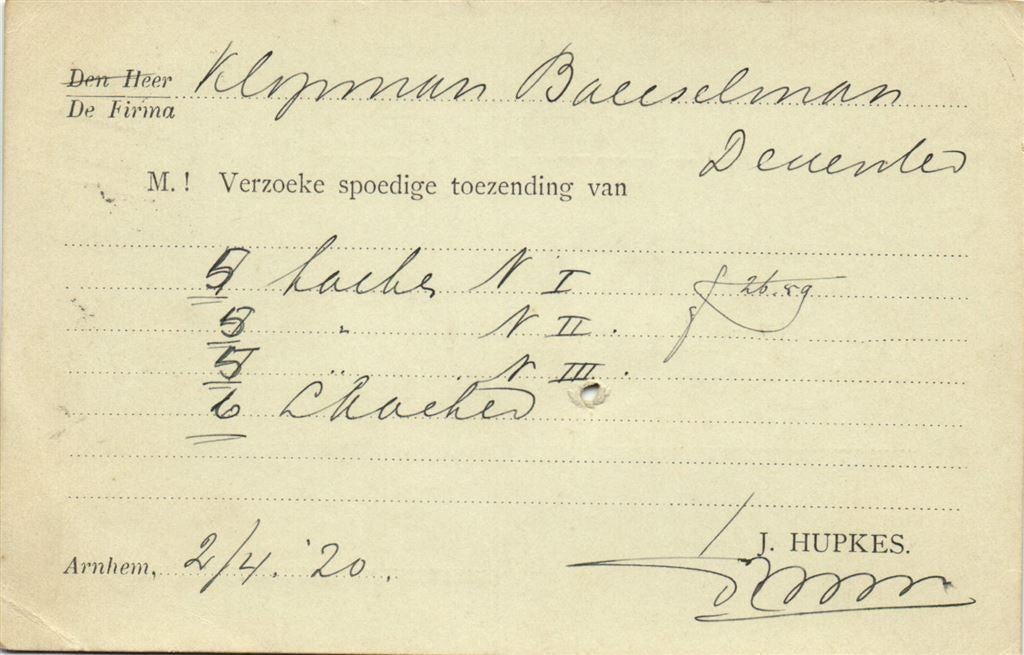 Den Heer Klopman Baeeselman
De Firma
Deventer
M.! Verzoeke spoedige toezending van
5 N I
5 " N II.
5 " N III.
6
Arnhem, 2/4.'20.
J. HUPKES.